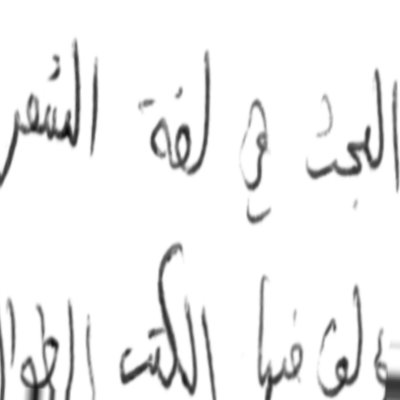 البحث في لغة الشعر
فيها الكتب الطوا